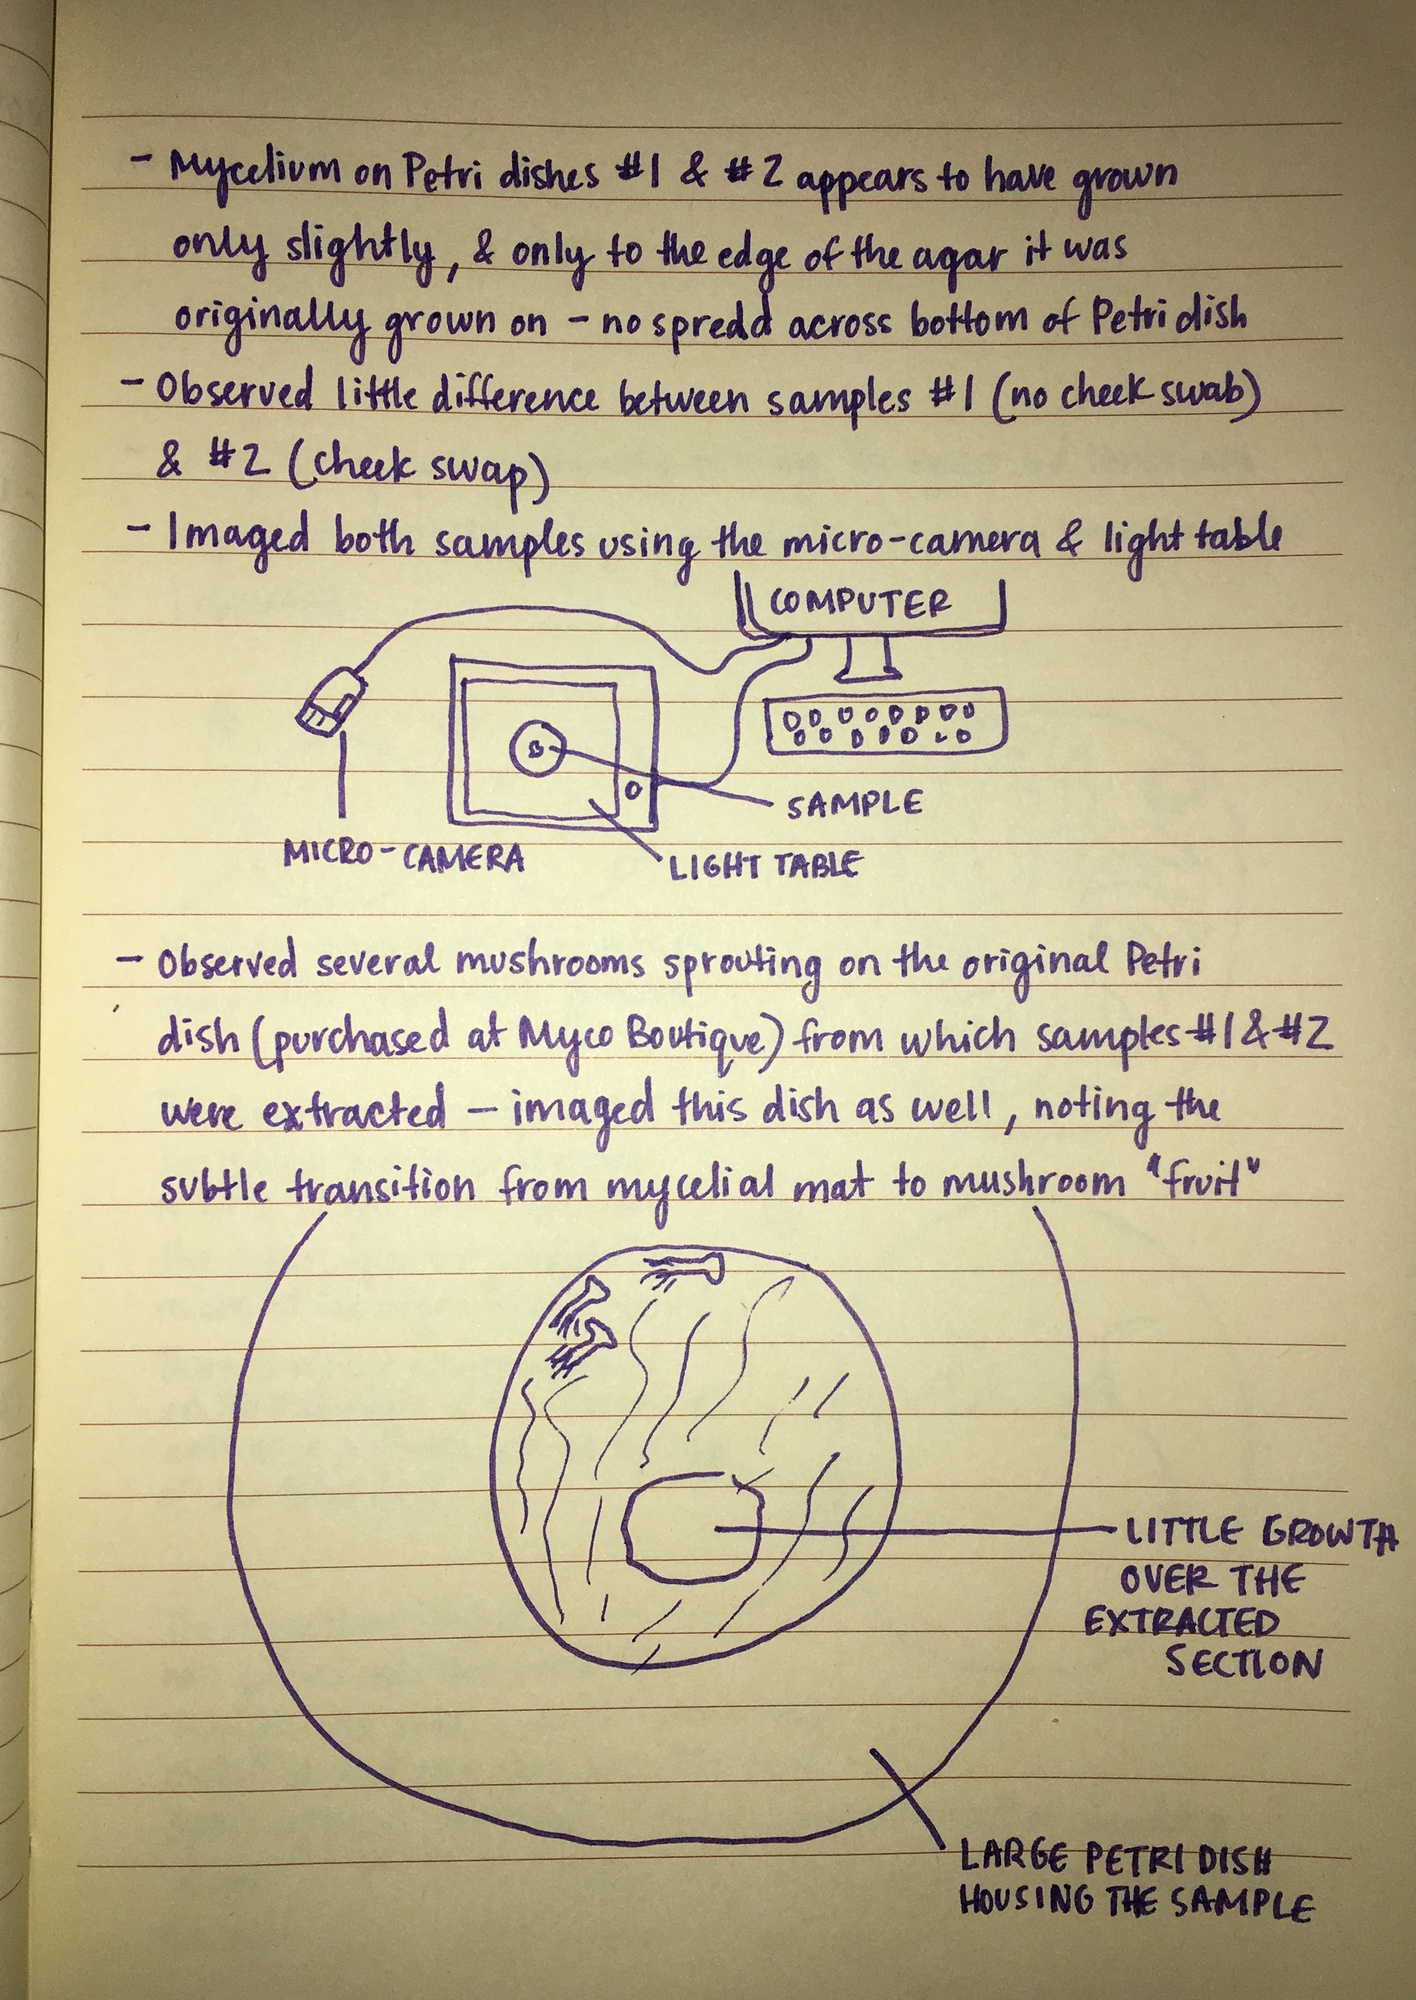 - Mycelium on Petri dishes #1 & #2 appears to have grown
only slightly, & only to the edge of the agar it was
originally grown on - no spredd across bottom of Petri dish
- Observed little difference between samples #1 (no cheek swab)
& #2 (cheek swap)
- Imaged both samples using the micro-camera & light table
COMPUTER
SAMPLE
MICRO-CAMERA
LIGHT TABLE
- Observed several mushrooms sprouting on the original Petri
dish (purchased at Myco Boutique) from which samples #1 & #2
were extracted - imaged this dish as well, noting the
subtle transition from mycelial mat to mushroom "fruit"
LITTLE GROWTH
OVER THE
EXTRACTED
SECTION
LARGE PETRI DISH
HOUSING THE SAMPLE